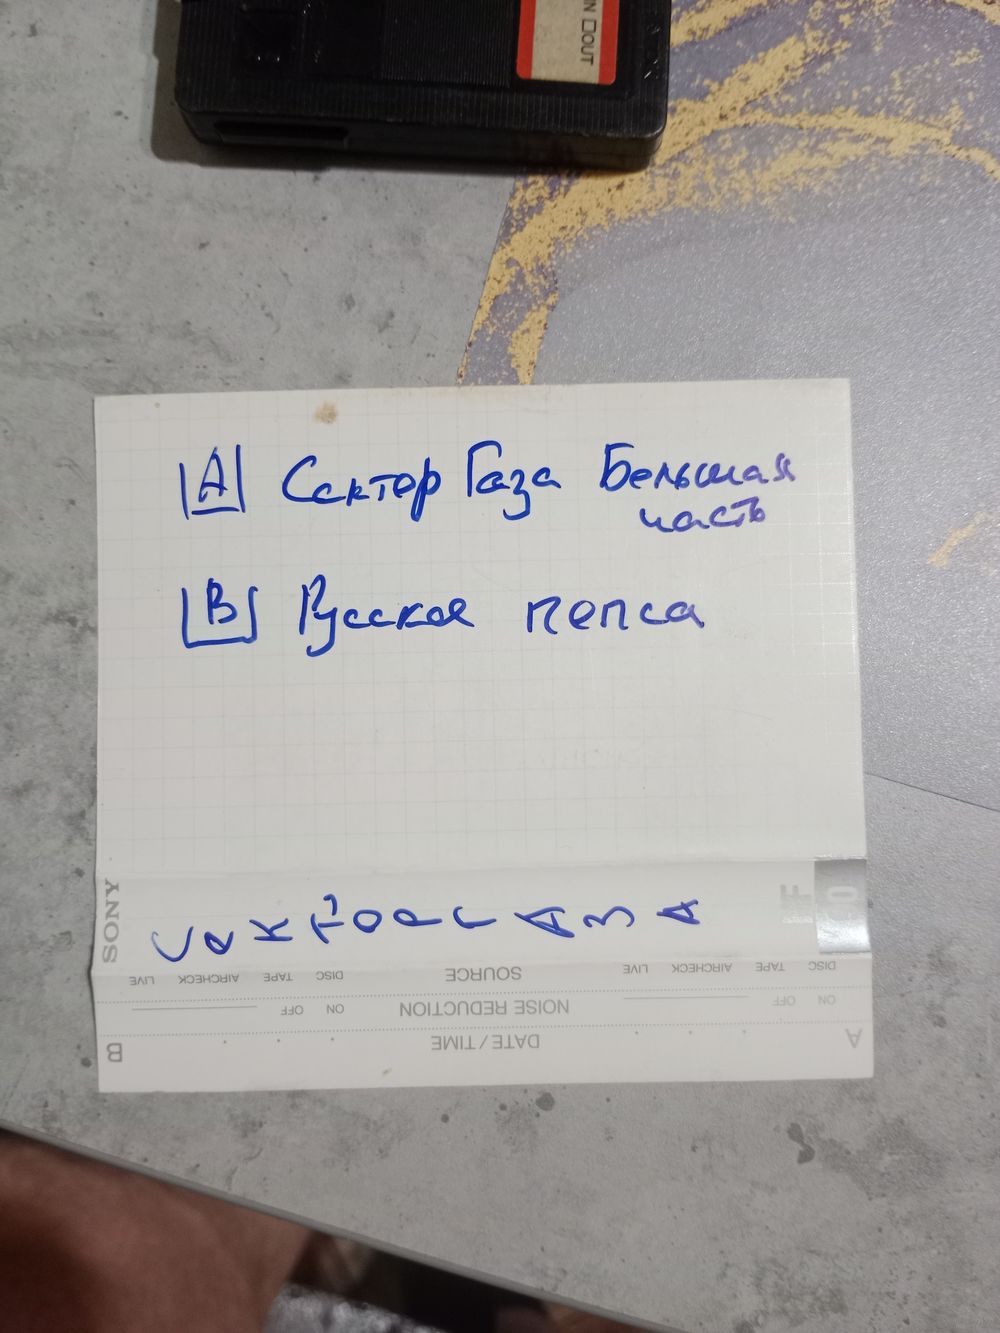 IN □OUT
A Сектор Газа Большая
часть
B Русская попса
SONY
СЕКТОР ГАЗА
DISC TAPE AIRCHECK LIVE SOURCE DISC TAPE AIRCHECK LIVE
ON OFF NOISE REDUCTION ON OFF
A DATE/TIME B